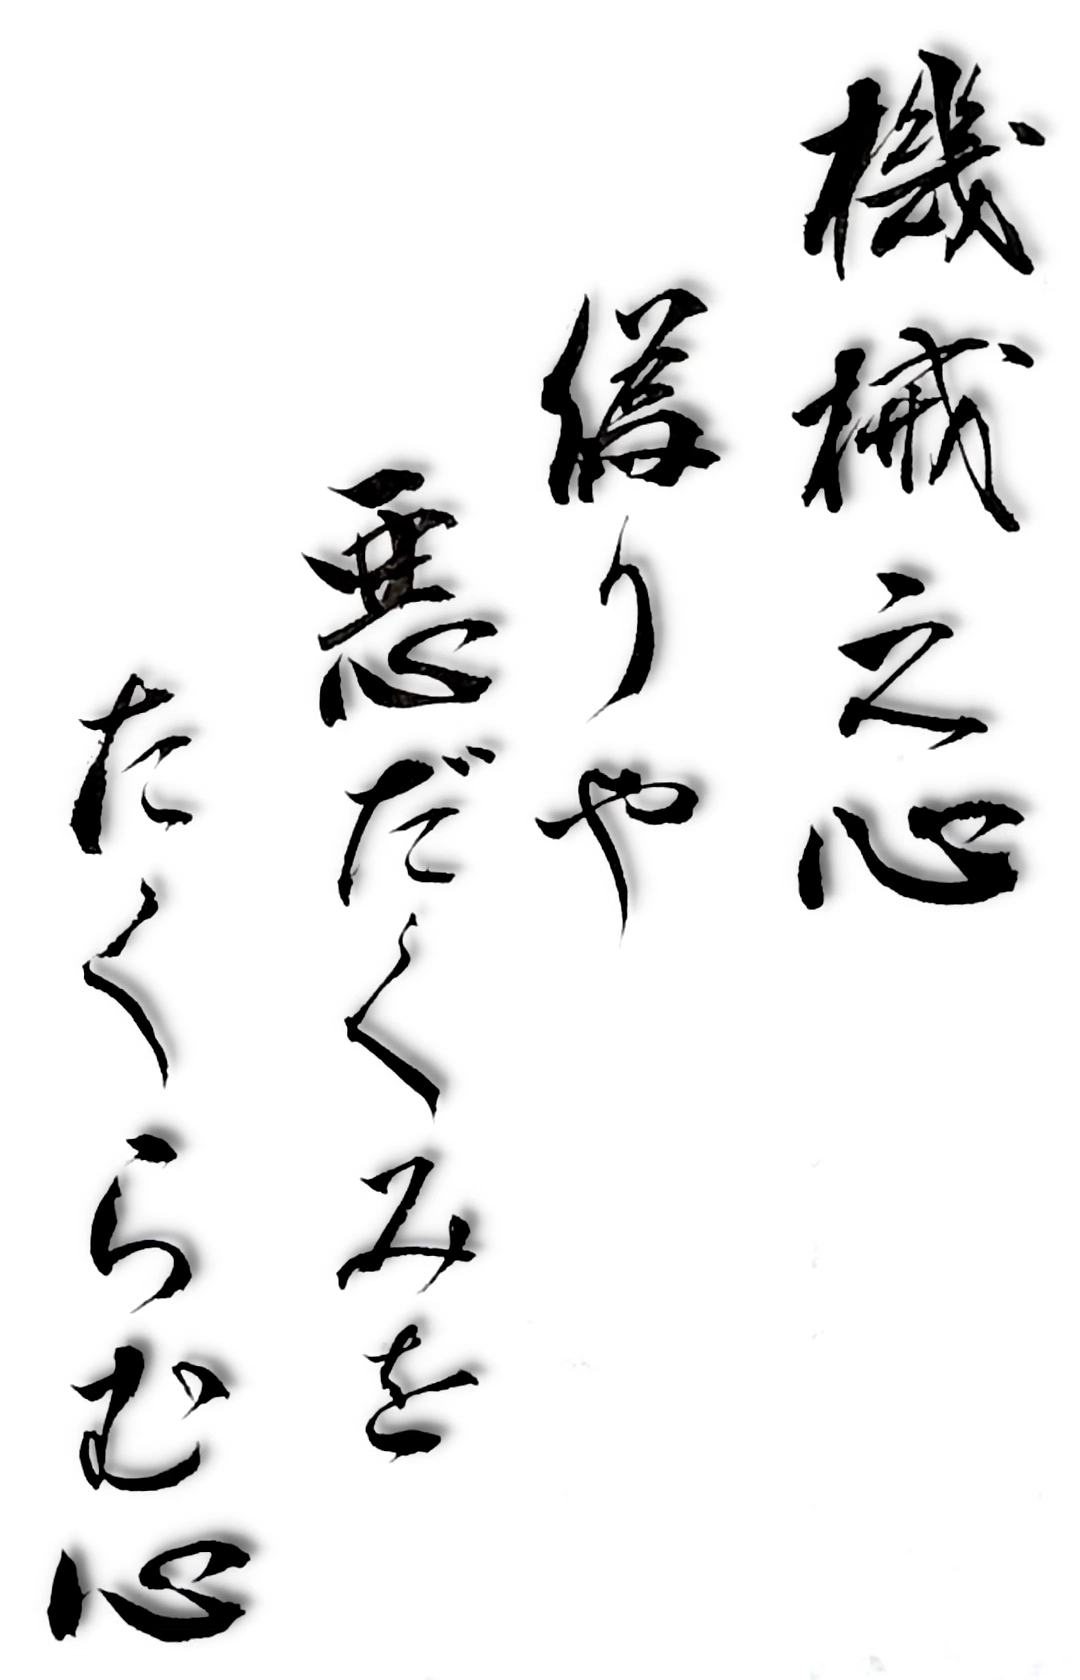 機械之心
偽りや
悪だくみを
たくらむ心